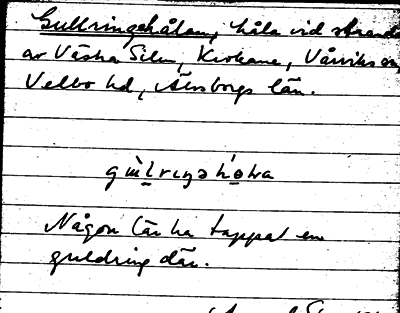 Gullringehålan, håla vid strande
av Västra Silen, Krokane, Vårviks sn,
Velbo hd, Älvsborgs län.
Någon lär ha tappat en
guldring där.